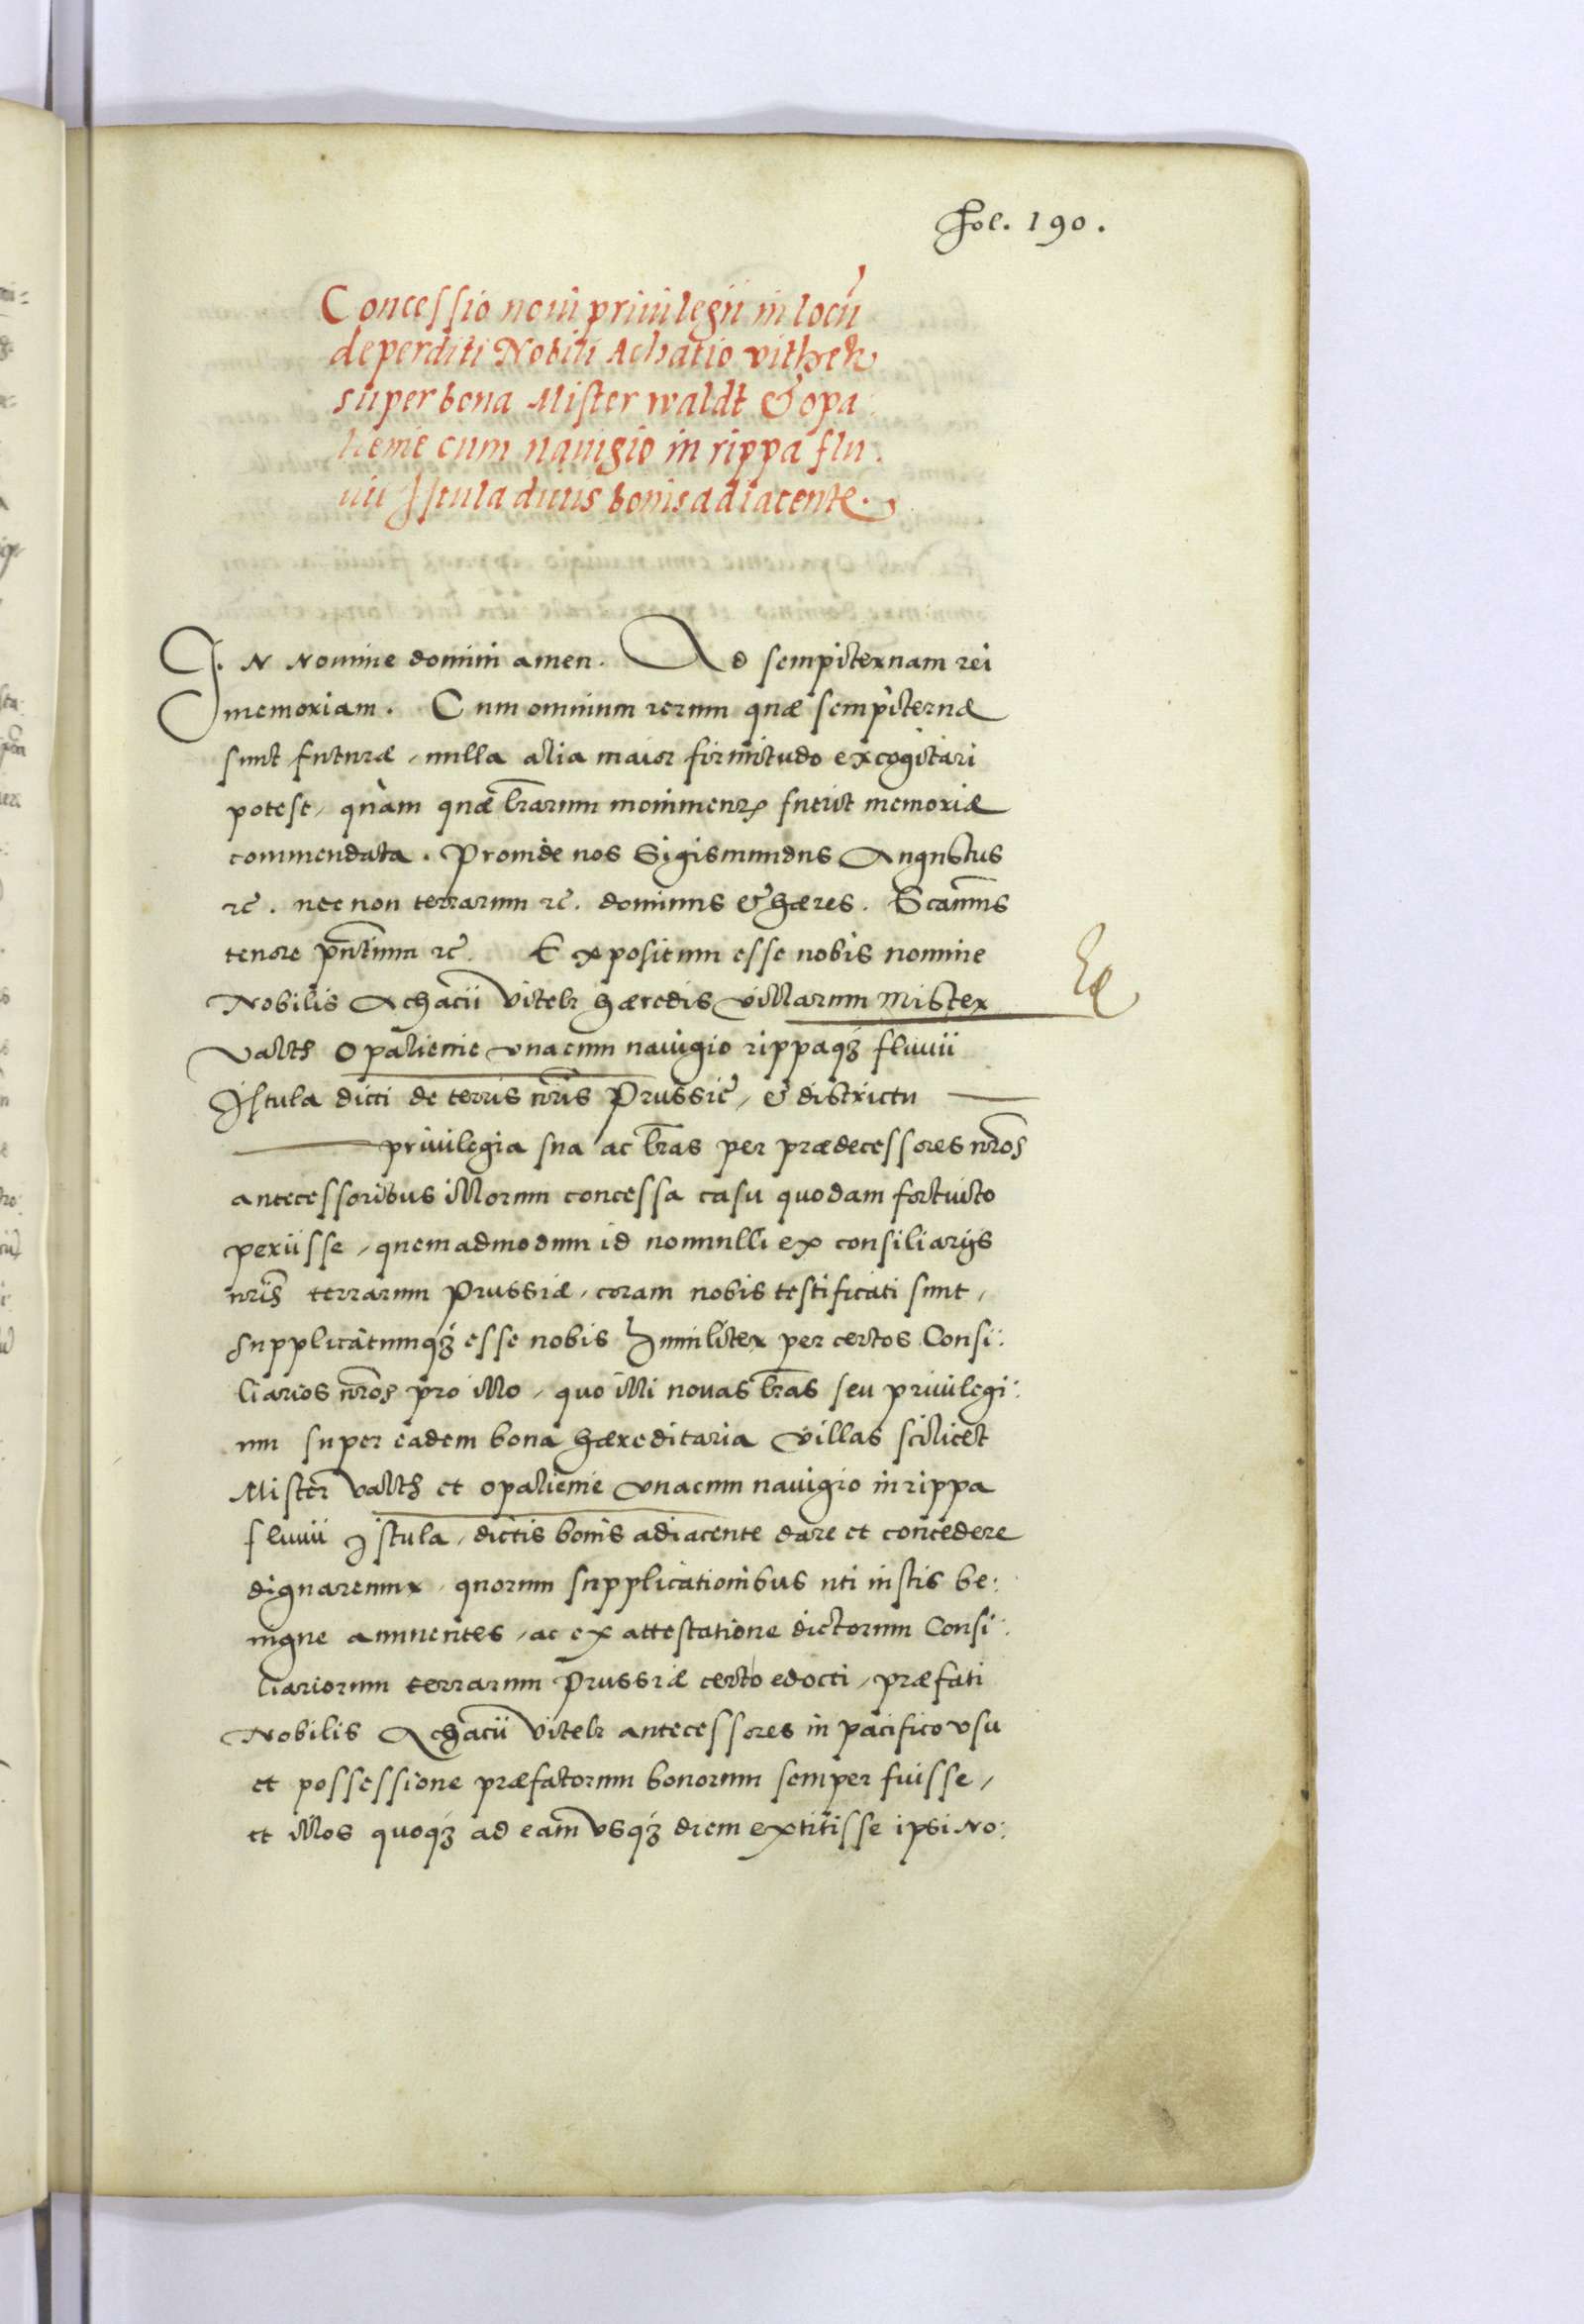 Fol. 190.
Concessio noui priuilegii in locũ
deperditi Nobili Achatio vithek
super bona Mister waldt & opa:
lienie cum nauigio in rippa flu:
uii Istula dictis bonis adiacente.
IN Nomine domini amen. Ad sempiternam rei
memoriam. Cum omnium rerum quæ sempiternæ
sunt futuræ, nulla alia maior firmitudo excogitari
potest, quàm quæ lr̃arum monimentꝭ fuerit memoriæ
commendata. Proinde nos Sigismundus Augustus
ꝛc̃. nec non terrarum ꝛc̃. dominus & hæres. Significamus
tenore pñtium ꝛc̃. Expositum esse nobis nomine
Nobilis Achacii Vitek hæredis villarum Mister
valth Opalienie vnacum nauigio rippaqꝫ fluuii
Istula dicti de terris nr̃is Prussie, & districtu —
— priuilegia sua ac lr̃as per prædecessores nr̃os
antecessoribus illorum concessa casu quodam fortuito
periisse, quemadmodum id nonnulli ex consiliarijs
nr̃is terrarum Prussiæ, coram nobis testificati sunt,
supplicatumqꝫ esse nobis humiliter per certos Consi:
liarios nr̃os pro illo, quo illi nouas lr̃as seu priuilegi:
um super eadem bona hæreditaria villas scilicet
Mister valth et opalienie vnacum nauigio in rippa
fluuii Istula, dictis bonis adiacente dare et concedere
dignaremur, quorum supplicationibus uti iustis be:
nigne annuentes, ac ex attestatione dictorum Consi:
liariorum terrarum Prussiæ certo edocti, præfati
Nobilis Achacii Vitek antecessores in pacifico vsu
et possessione præfatorum bonorum semper fuisse,
et illos quoqꝫ ad eam vsqꝫ diem extitisse ipsi No: